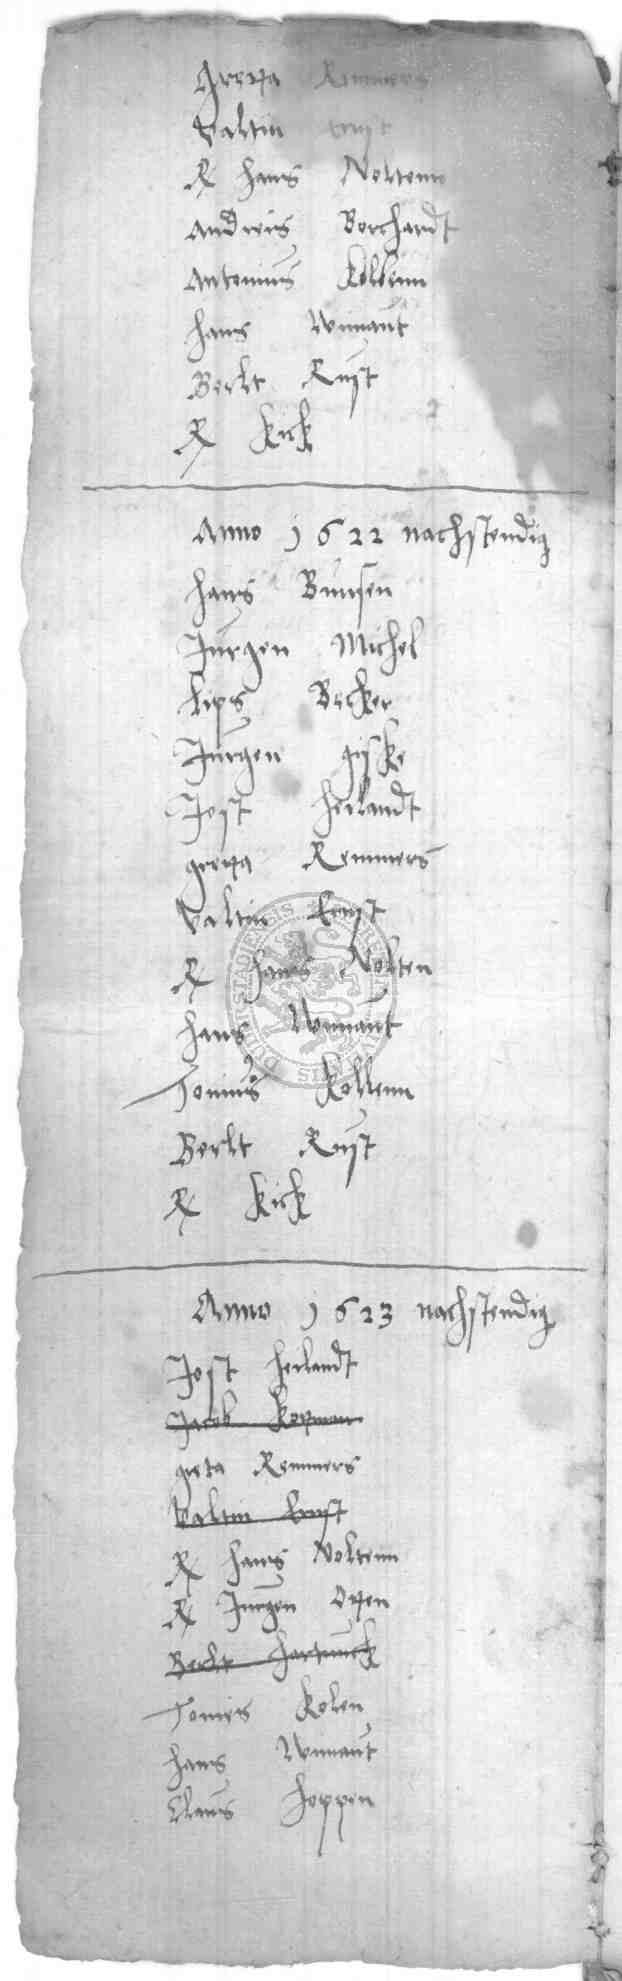 Greta Remmers
Valtin Ernst
R Hans Noltenn
Andreis Borchardt
Antonius Kollenn
Hans Winaut
Berlt Rust
R Kick
Anno 1622 nachstendig
Hans Bunsen
Jurgen Michel
Lips Becker
Jurgen giske
Jost Heilandt
greta Remmers
Valtin Ernst
R Hans Nolten
Hans Winaut
Tonius Kollenn
Berlt Rust
R Kick
Anno 1623 nachstendig
Jost Heilandt
Jacob Kopman
greta Remmers
Valtin Ernst
R Hans Noltenn
R Jurgen Otten
Berlt Hartunck
Tonies Kolen
Hans Winaut
Claus Hoppen